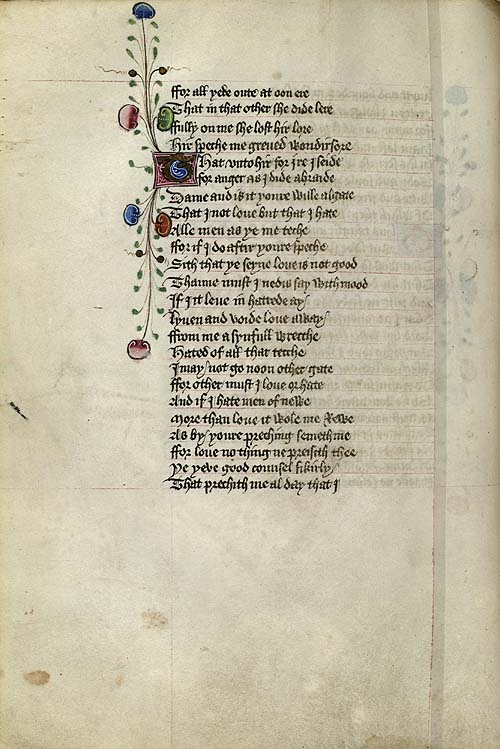 ffor all yede oute at oon ere
That in that other she dide lere
ffully on me she lost hir lore
Hir speche me greued wondir sore
That vnto hir for ire I seide
ffor anger as I dide abraide
Dame and is it youre wille algate
That I not love but that I hate
Alle men as ye me teche
ffor if I do after youre speche
Sith that ye seyne love is not good
Thanne must I nedis say with mood
If I it leve in hatrede ay
Lyuen and voide love away
ffrom me a synfull wrecche
Hated of all that tecche
I may not go noon other gate
ffor other must I love or hate
And if I hate men of newe
More than love it wole me Rewe
As by youre preching semeth me
ffor love no thing ne preisith thee
Ye yeve good counsel sikirly
That prechith me al day that I